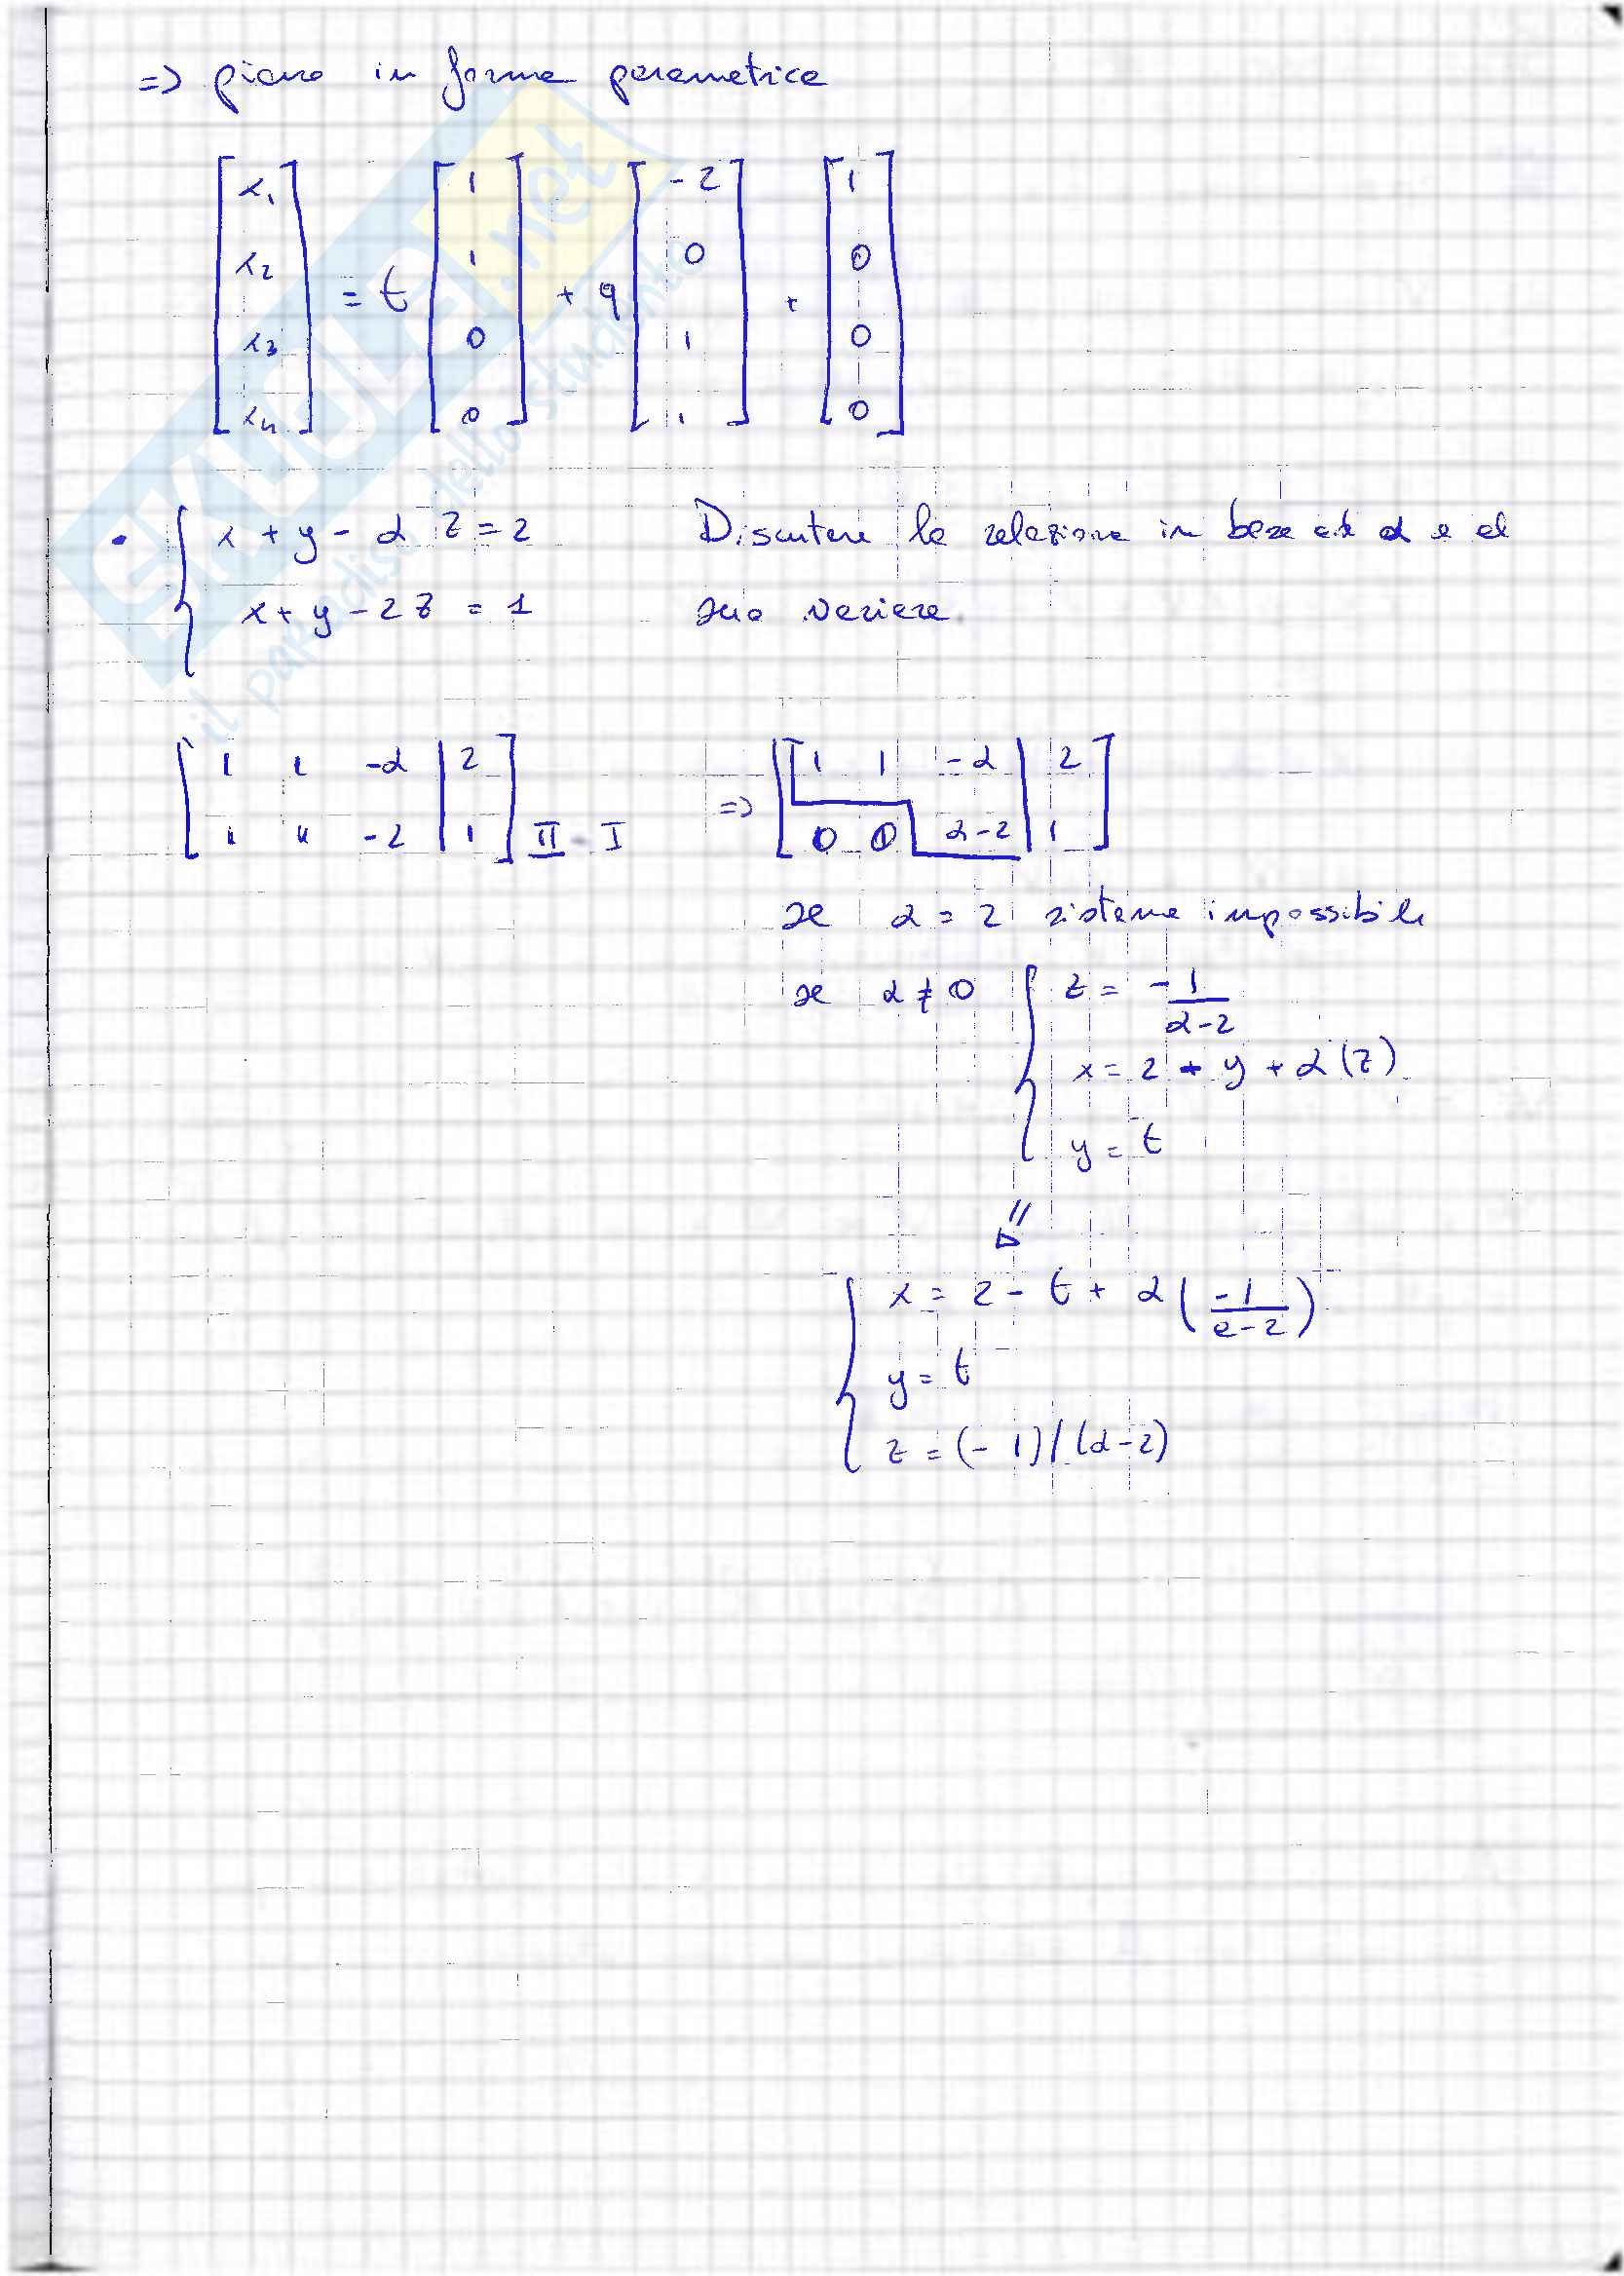 => piano in forma parametrica
[x₁ x₂ x₃ x₄] = t [1 1 0 0] + q [-2 0 1 1] + [1 0 0 0]
• { x + y - α z = 2 Discutere la relazione in base ad α e al
x + y - 2z = 1 suo variare
[1 1 -α | 2] => [1 1 -α | 2]
[1 1 -2 | 1] II - I [0 0 α-2 | 1]
se α = 2 sistema impossibile
se α ≠ 0 { z = -1/(α-2)
x = 2 - y + α(z)
y = t
⇓
{ x = 2 - t + α(-1/(α-2))
y = t
z = (-1)/(α-2)
SKUOLA.net
il paradiso dello studente